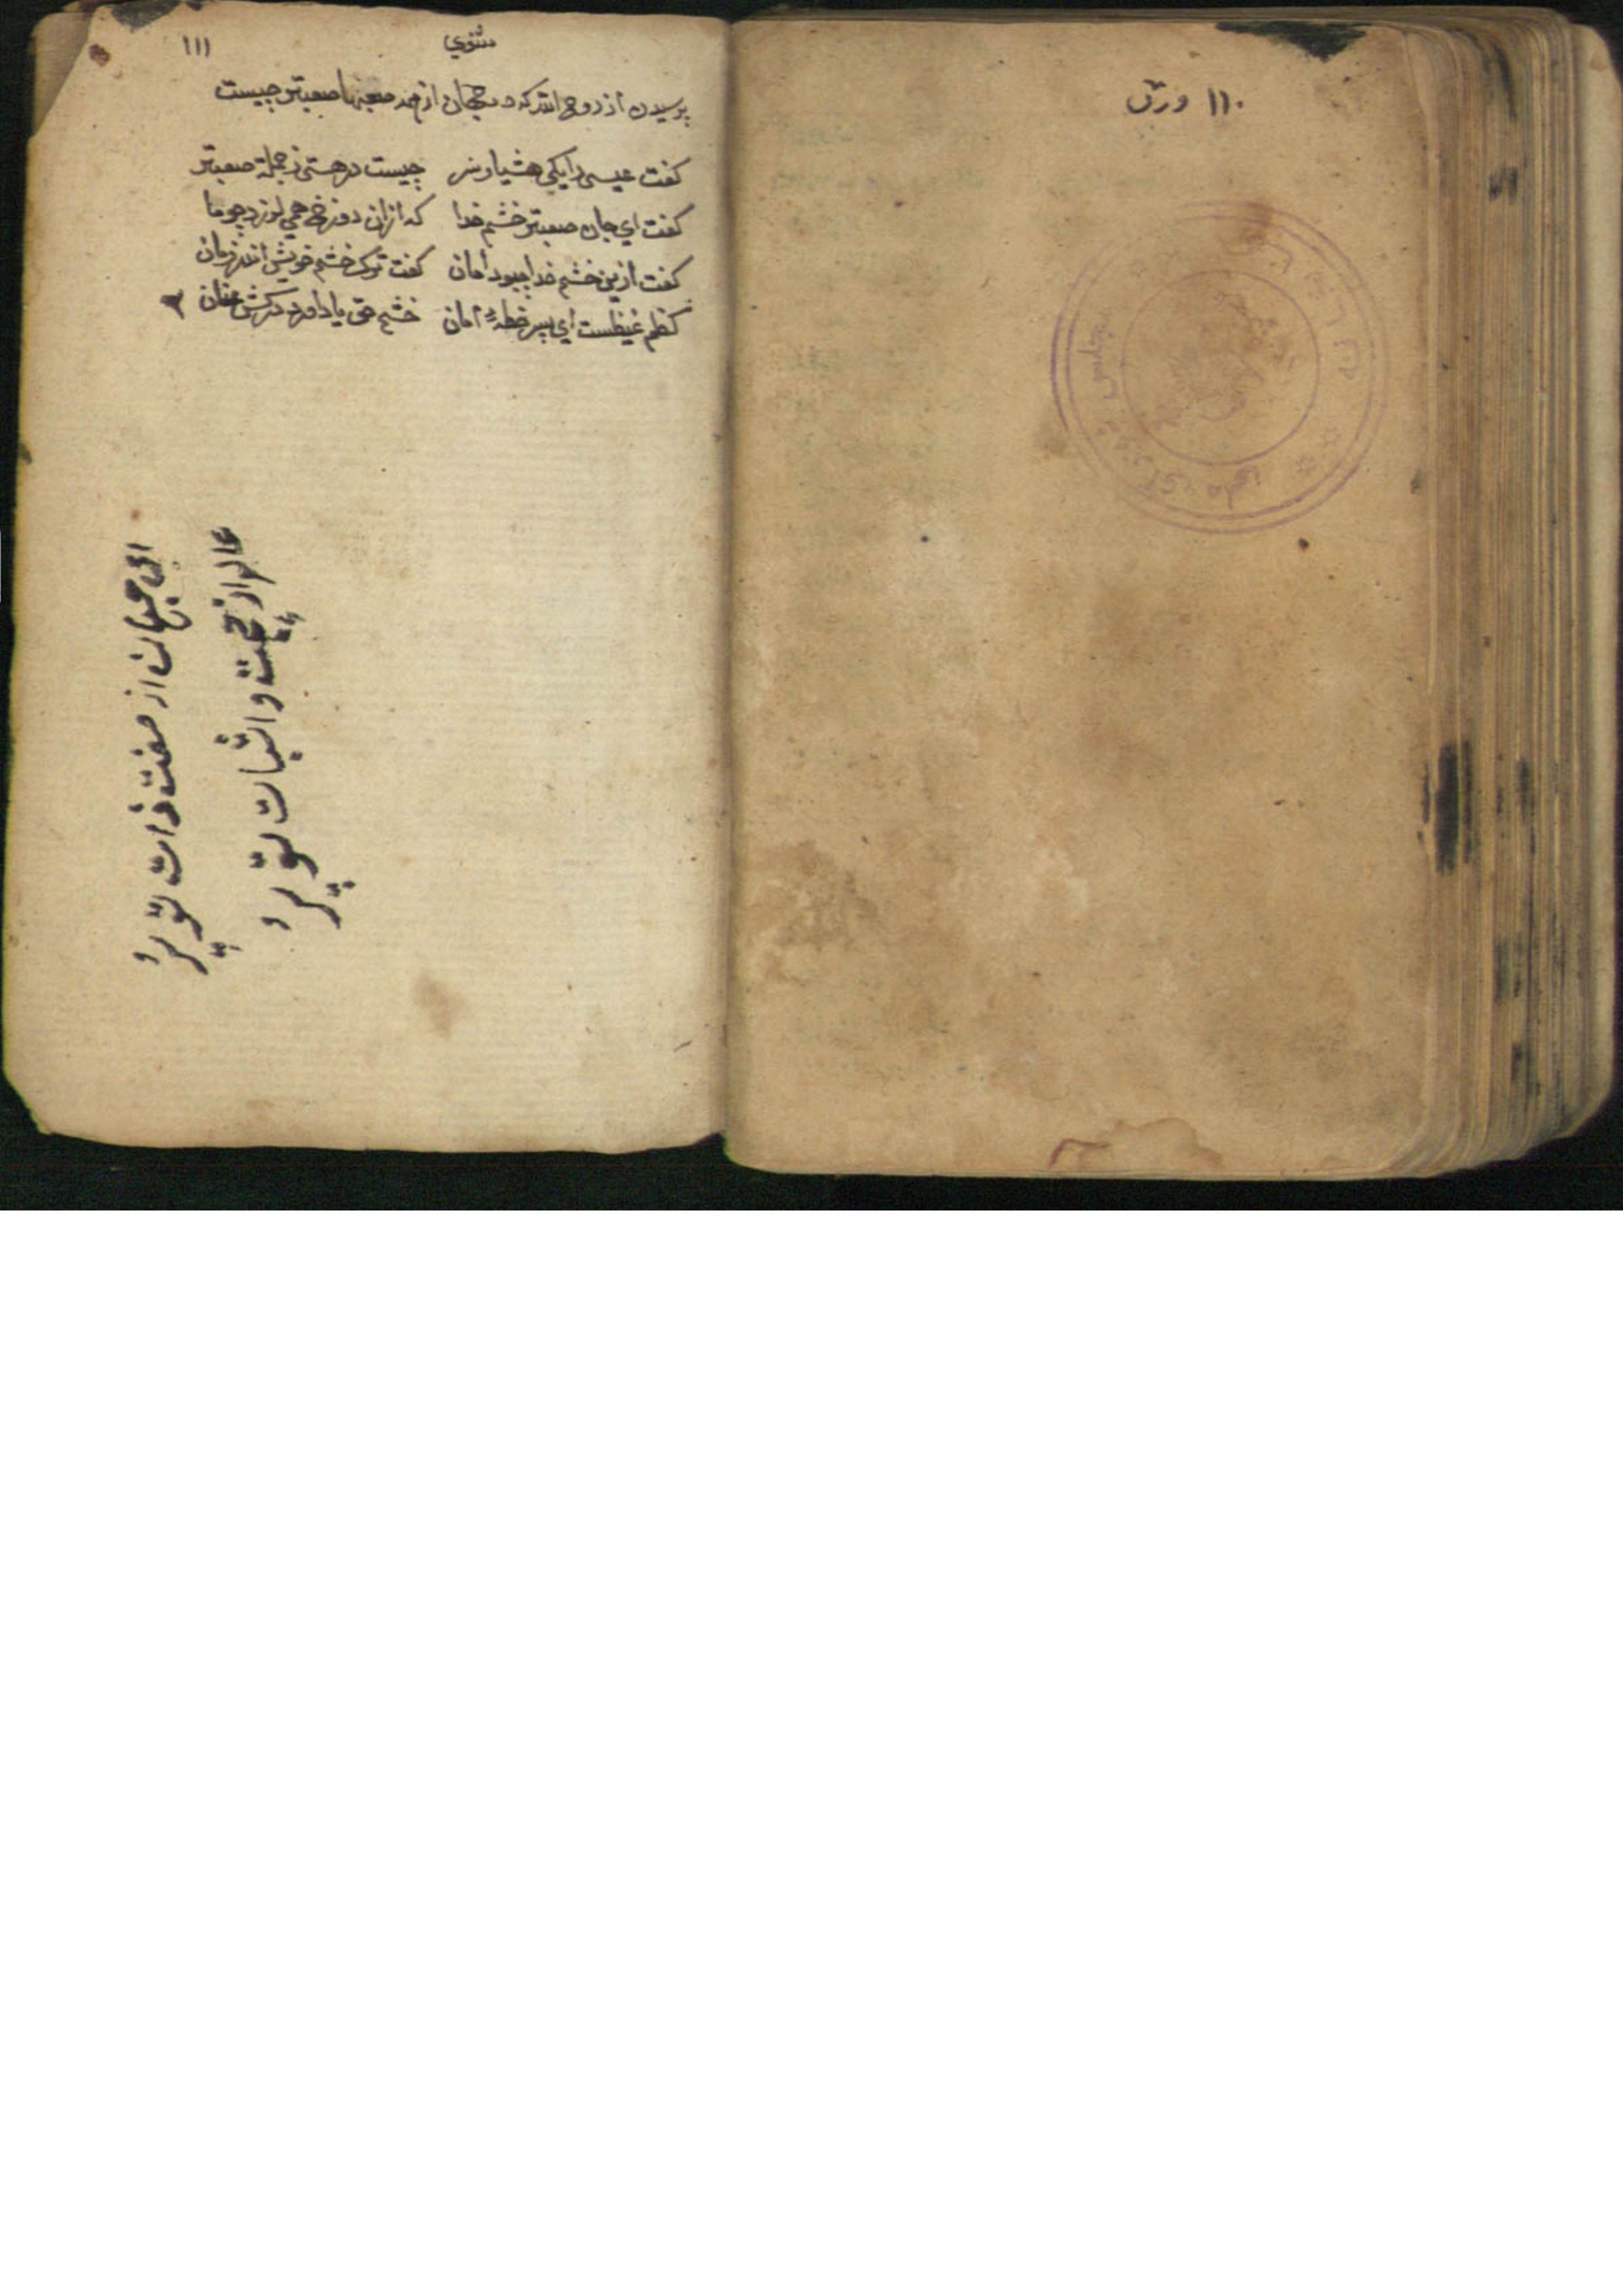 ١١٠ ورق
مجلس شورای ملی
مثنوي
١١١
پرسیدن از روح الله که در جهان از همه صعبها صعبتر چیست
کفت عیسی را یکی هشیار سر چیست در هستی ز جملۀ صعبتر
کفت اي جان صعبتر خشم خدا که ازان دوزخ همی لرزد چو ما
کفت ازین خشم خدا چبود امان کفت ترک خشم خویش اندر زمان
کظم غیظست اي پسر خط امان خشم حق یاد آور درکش عنان
ای جهان از صفت ذات تو پر
عالم از حجت و اثبات تو پر